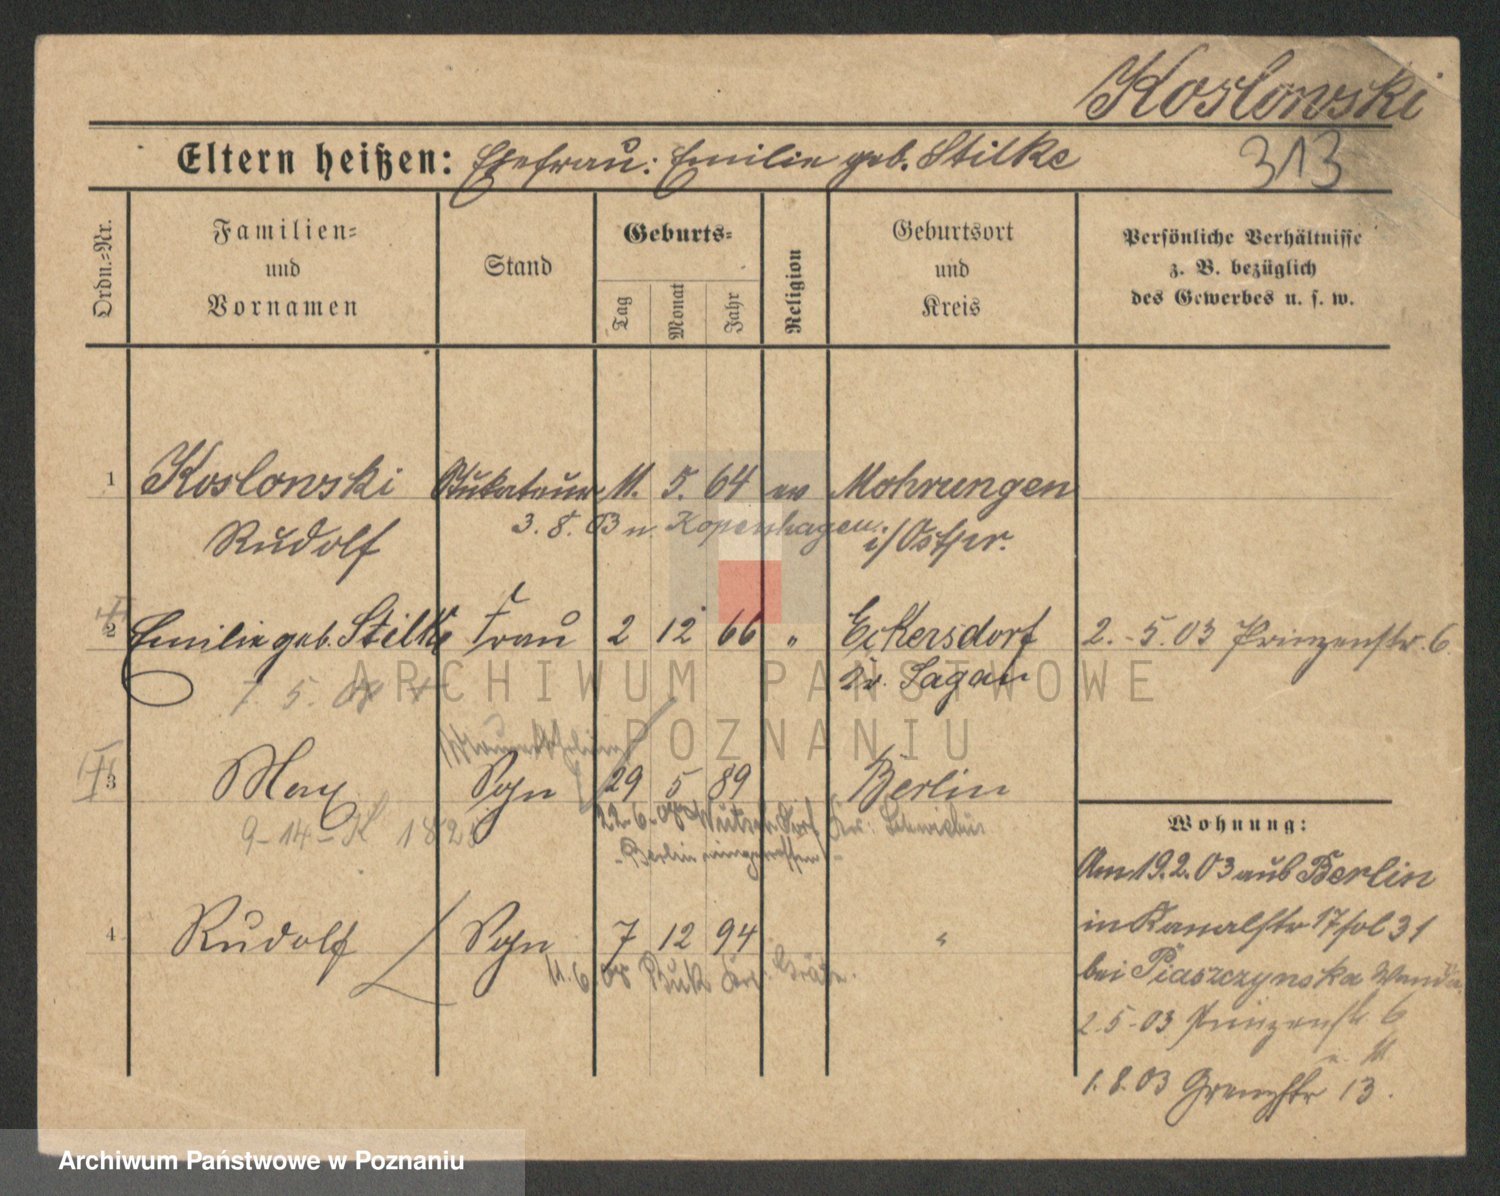 Koslowski
313
Eltern heißen: Ehefrau: Emilie geb. Stilke
Ordn.-Nr.
Familien-
und
Vornamen
Stand
Geburts-
Tag
Monat
Jahr
Religion
Geburtsort
und
Kreis
Persönliche Verhältnisse
z. B. bezüglich
des Gewerbes u. s. w.
1 Koslowski Stukateur 11. 5. 64 ev Mohrungen
3. 8. 03 n. Kopenhagen
Rudolf i/Ostpr.
2 Emilie geb. Stilke Frau 2 12 66 " Eckersdorf 2.-5.03 Prinzenstr. 6
Kr. Sagan
7. 5. 08
ARCHIWUM PAŃSTWOWE
W POZNANIU
3 Max Sohn 29 5 89 Berlin
9-14-K
22-6-08
Berlin
Wohnung:
Am 19.2.03 aus Berlin
4 Rudolf Sohn 7 12 94 "
in Kanalstr 17 sol 31
11.6.08 Buk Kr: Grätz.
bei Piaszczynska Wanda
2.5-03 Prinzenstr. 6
1.8.03 Grenzstr 13.
Archiwum Państwowe w Poznaniu